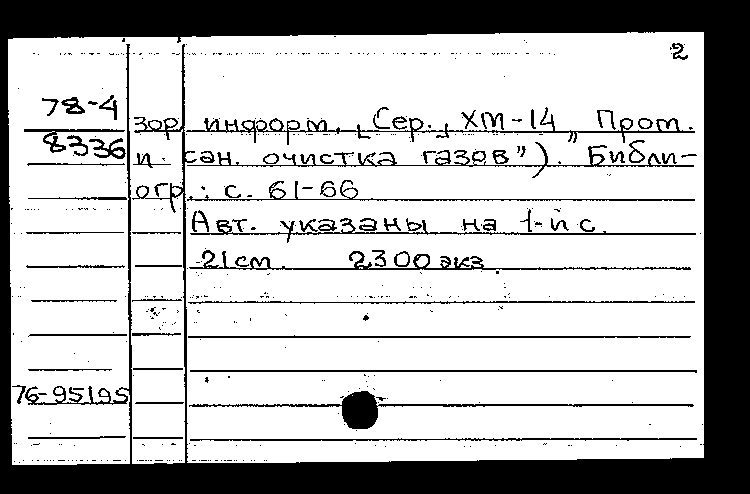 2
78-4
8336
зор. информ. [Сер.] ХМ-14 „Пром.
и сан. очистка газов"). Библи-
огр.: с. 61-66
Авт. указаны на 1-й с.
21 см. 2300 экз.
76-95195